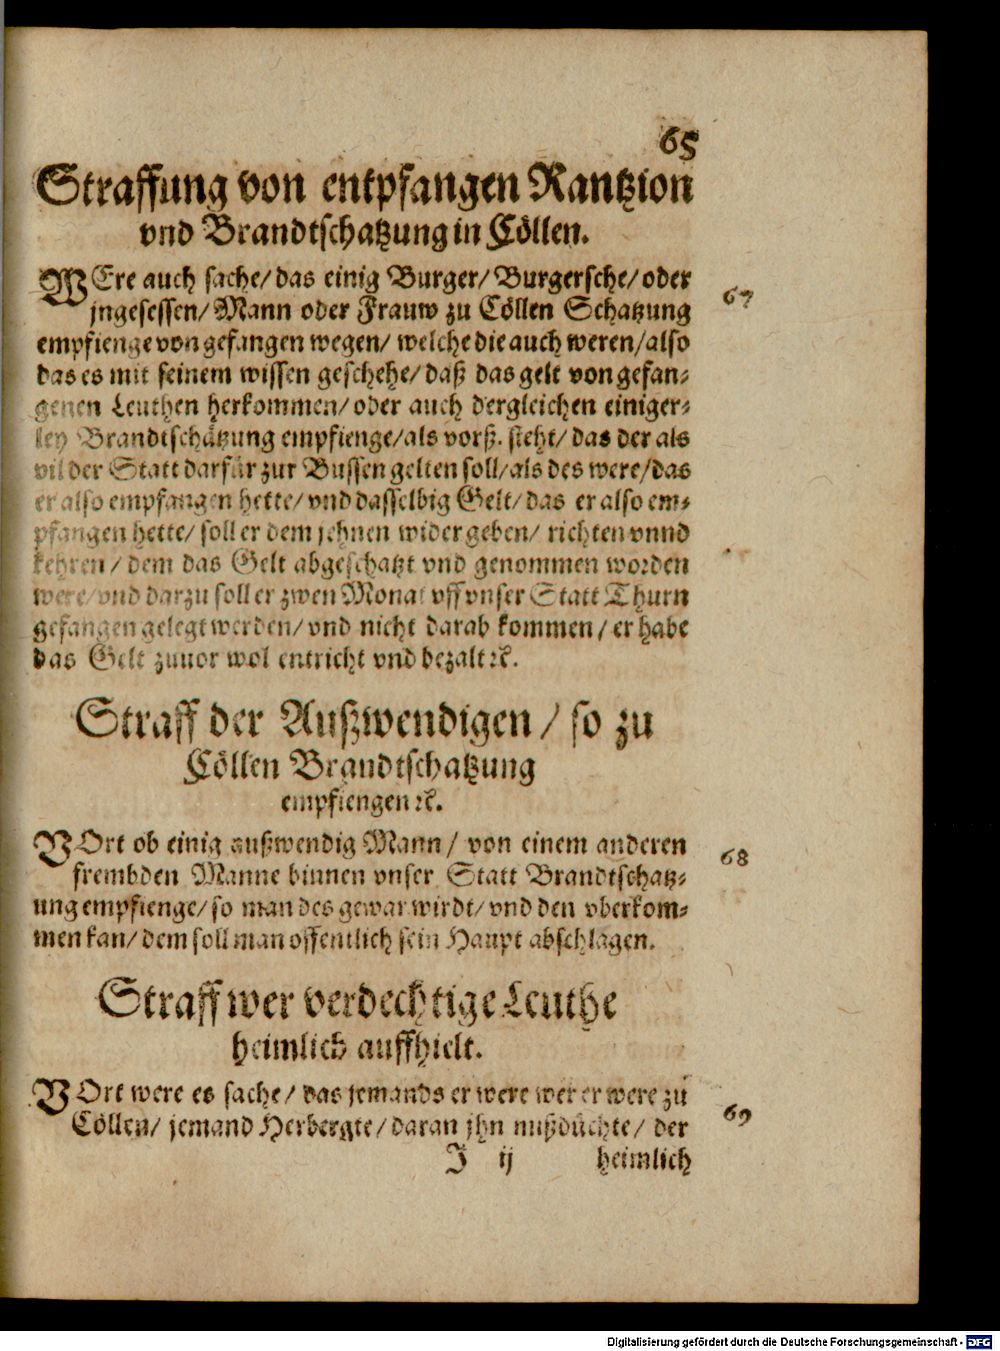 65
Straffung von entpfangen Rantzion
vnd Brandtschatzung in Cöllen.
WEre auch sache/ das einig Burger/ Burgersche/ oder
jngesessen/ Mann oder Frauw zu Cöllen Schatzung
67
empfienge von gefangen wegen/ welche die auch weren/ also
das es mit seinem wissen geschehe/ daß das gelt von gefan-
genen Leuthen herkommen/ oder auch dergleichen einiger-
ley Brandtschätzung empfienge/ als vorß. steht/ das der als
vil der Statt darfür zur Bussen gelten soll/ als des were/ das
er also empfangen hette/ vnd dasselbig Gelt/ das er also em-
pfangen hette/ soll er dem jehnen wider geben/ richten vnnd
kehren/ dem das Gelt abgeschatzt vnd genommen worden
were/ vnd darzu soll er zwen Monat vff vnser Statt Thurn
gefangen gelegt werden/ vnd nicht darab kommen/ er habe
das Gelt zuuor wol entricht vnd bezalt ꝛc.
Straff der Außwendigen/ so zu
Cöllen Brandtschatzung
empfiengen ꝛc.
VOrt ob einig außwendig Mann/ von einem anderen
frembden Manne binnen vnser Statt Brandtschatz-
68
ung empfienge/ so man des gewar wirdt/ vnd den vberkom-
men kan/ dem soll man offentlich sein Haupt abschlagen.
Straff wer verdechtige Leuthe
heimlich auffhielt.
VOrt were es sache/ das jemands er were wer er were zu
Cöllen/ jemand Herbergte/ daran jhn mißdüchte/ der
69
J ij heimlich
Digitalisierung gefördert durch die Deutsche Forschungsgemeinschaft - DFG